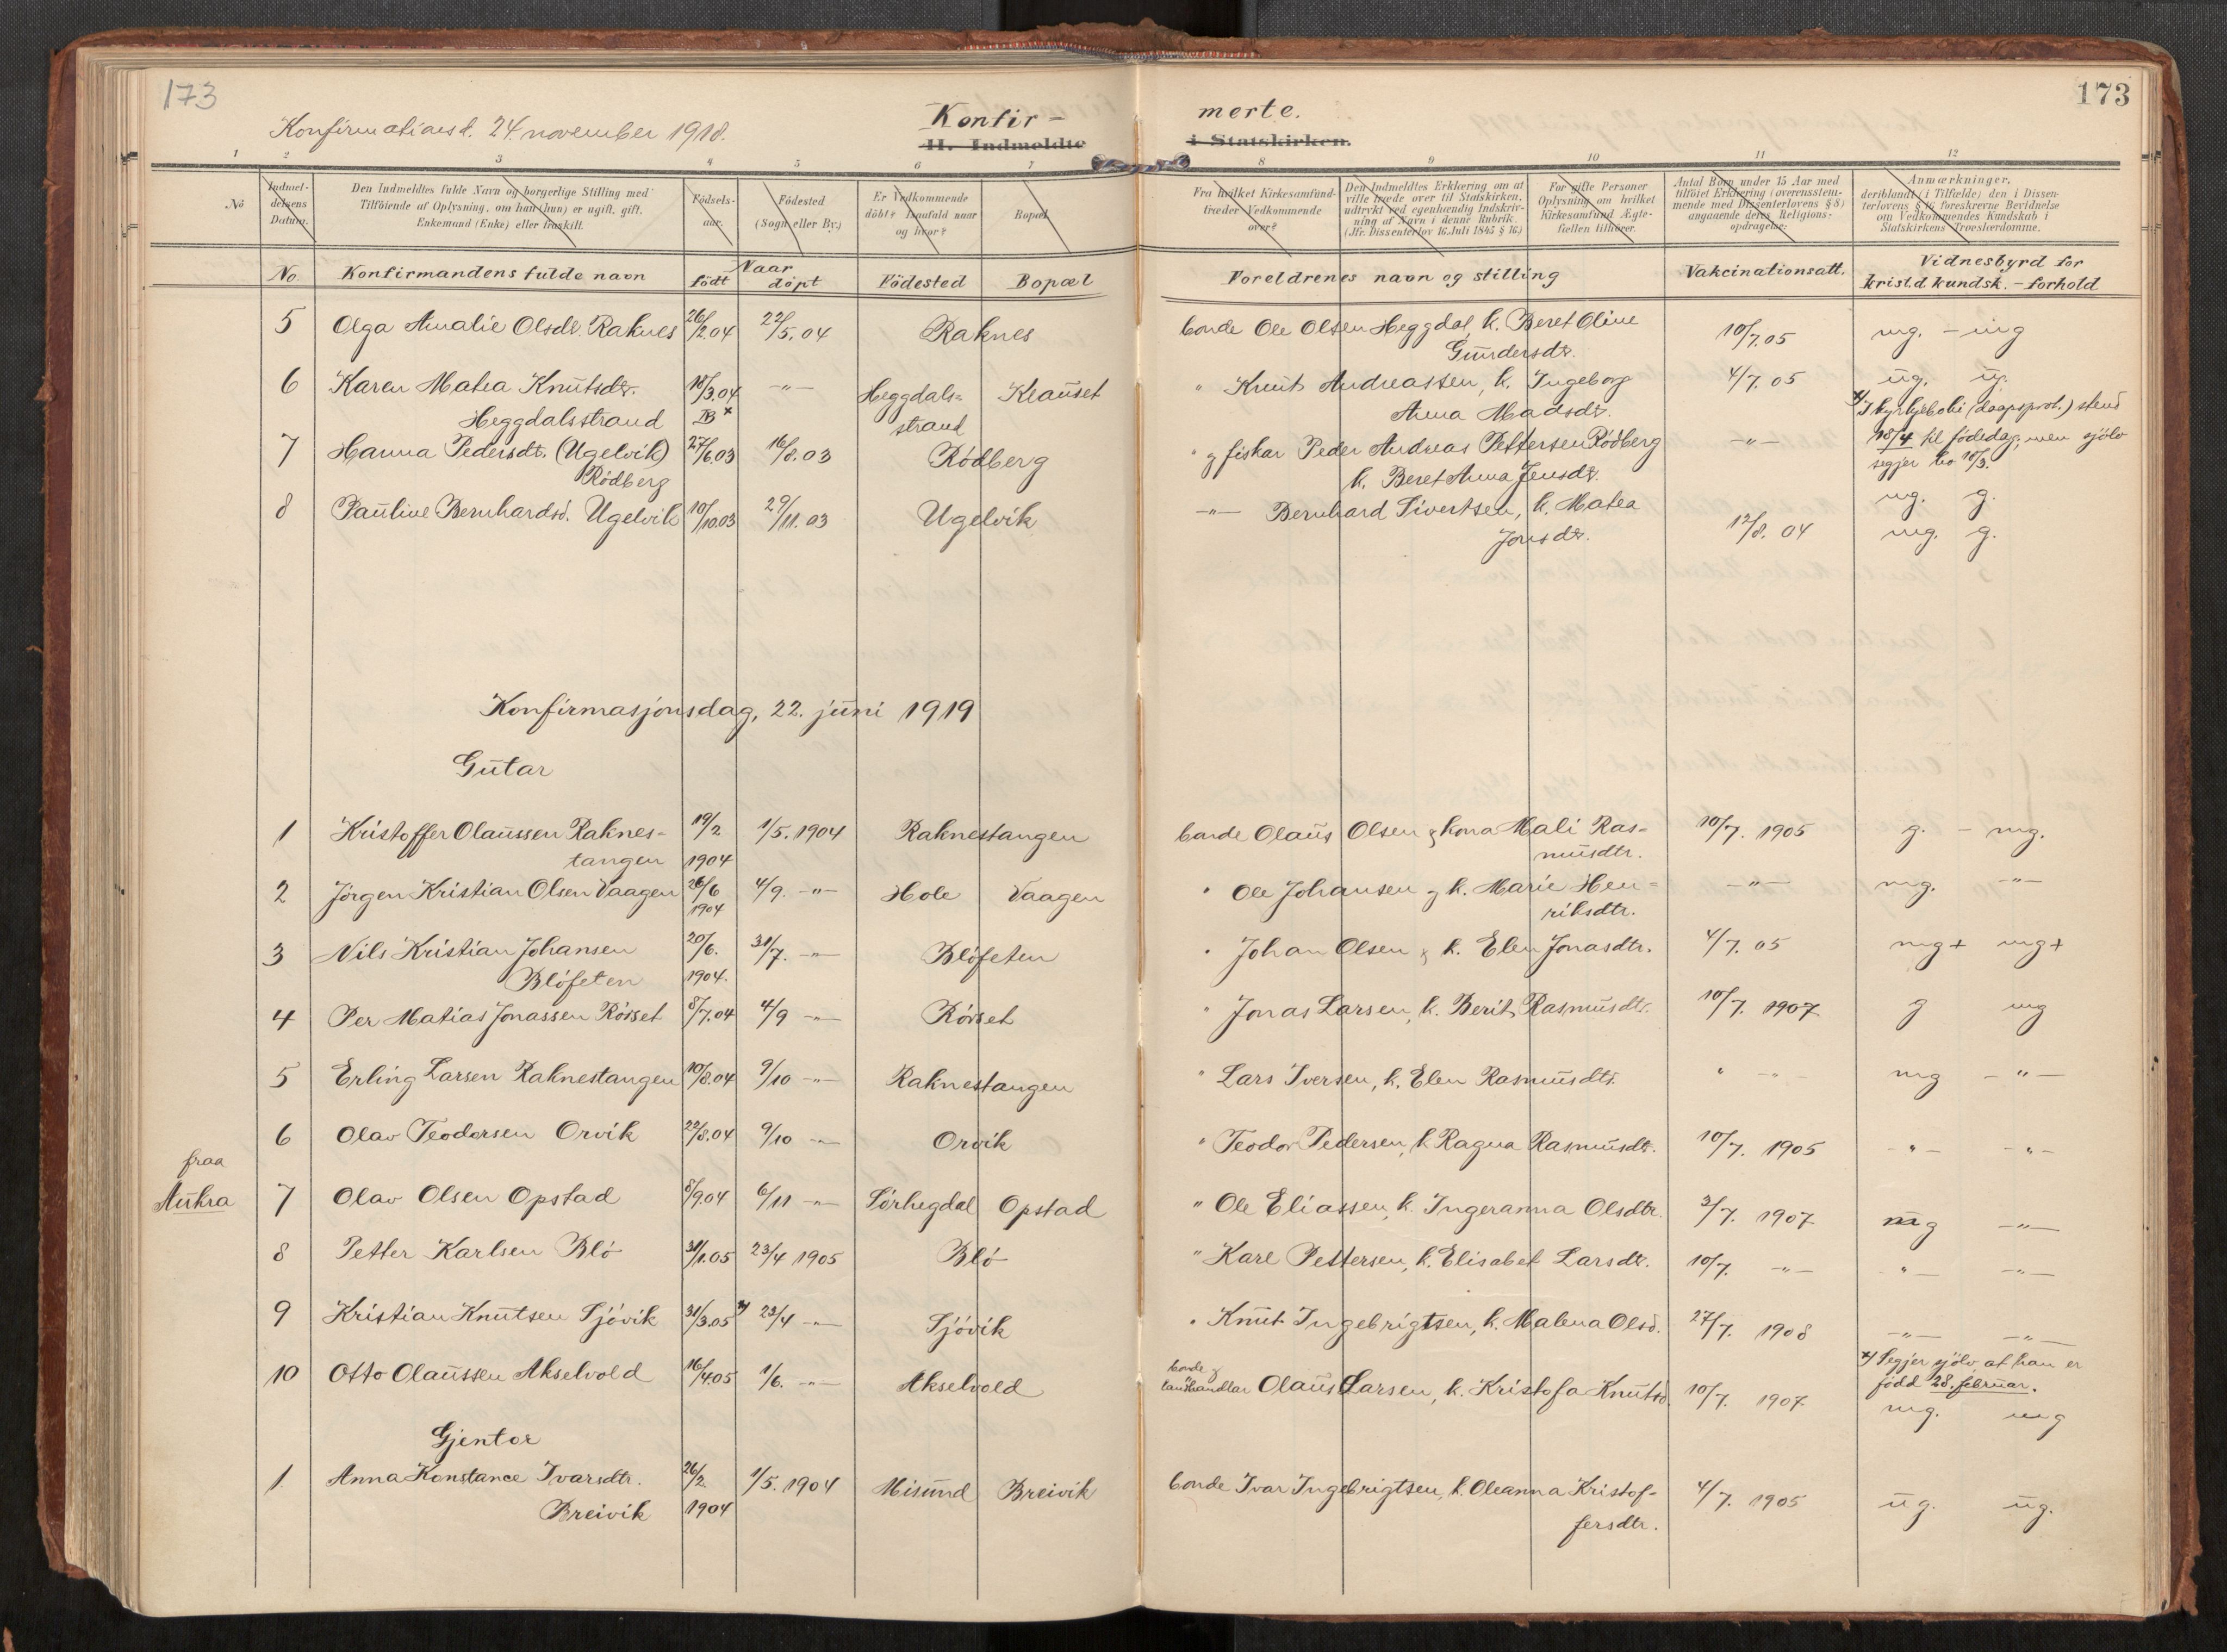 173
Konfirmationsd. 24. november 1918.
Konfir-
II. Indmeldte
merte.
i Statskirken.
173
1 2 3 4 5 6 7 8 9 10 11 12
No
Indmel-
delsens
Datum.
Den Indmeldtes fulde Navn og borgerlige Stilling med
Tilföiende af Oplysning, om han (hun) er ugift, gift,
Enkemand (Enke) eller fraskilt.
Födsels-
aar.
Födested
(Sogn eller By.)
Er Vedkommende
döbt? Isaafald naar
og hvor?
Bopæl
Fra hvilket Kirkesamfund
træder Vedkommende
over?
Den Indmeldtes Erklæring om at
ville træde over til Statskirken,
udtrykt ved egenhændig Indskriv-
ning af Navn i denne Rubrik.
(Jfr. Dissenterlov 16 Juli 1845 § 16.)
For gifte Personer
Oplysning om hvilket
Kirkesamfund Ægte-
fællen tilhörer.
Antal Börn under 15 Aar med
tilföiet Erklæring (overensstem-
mende med Dissenterlovens § 8)
angaaende deres Religions-
opdragelse:
Anmærkninger,
deriblandt (i Tilfælde) den i Dissen-
terlovens § 16 foreskrevne Bevidnelse
om Vedkommendes Kundskab i
Statskirkens Troeslærdomme.
No. Konfirmandens fulde navn Naar
födt döpt Födested Bopæl Foreldrenes navn og stilling Vakcinationsatt. Vidnesbyrd for
krist.d. kundsk. - forhold
5 Olga Amalie Olsdr. Raknes 26/2.04 22/5.04 Raknes bonde Ole Olsen Heggdal, k. Beret Oline 10/7.05 mg. - mg
Gundersdr.
6 Karen Matea Knutsdr. 18/3.04 -"- Heggdals= Klauset " Knut Andreassen, k. Ingeborg 4/7.05 ug. ug.
Heggdalsstrand strand Anna Madsdr.
x) I kyrkjeboki (daapsprot.) stend
18/4 til födedag; men sjölv
segjer ho 18/3.
7 Hanna Pedersdt. (Ugelvik) 27/6.03 16/8.03 Rödberg " og fiskar Peder Andreas Pettersen Rödberg -"-
Rödberg k. Beret Anna Jensdr. mg. g.
8 Pauline Bernhardsd. Ugelvik 10/10.03 29/11.03 Ugelvik -"- Bernhard Sivertsen, k. Matea 12/8.04 mg. g.
Jonsdr.
Konfirmasjonsdag, 22. juni 1919
Gutar
1 Kristoffer Olaussen Raknes- 19/2 1/5. 1904 Raknestangen bonde Olaus Olsen & kona Mali Ras- 10/7. 1905 g. - mg.
tangen 1904 musdtr.
2 Jörgen Kristian Olsen Vaagen 26/6 4/9. -"- Hole Vaagen " Ole Johansen og k. Marie Hen- -"- mg. -"-
1904 riksdtr.
3 Nils Kristian Johansen 20/6. 31/7. -"- Blöfeten " Johan Olsen & k. Elen Jonasdtr. 4/7.05 mg+ mg+
Blöfeten 1904.
4 Per Matias Jonassen Rösset 8/7.04 4/9 -"- Rösset " Jonas Larsen, k. Berit Rasmusdtr. 10/7. 1907 g mg
5 Erling Larsen Raknestangen 10/8.04 9/10 -"- Raknestangen " Lars Iversen, k. Elen Rasmusdtr. " -"- mg -"-
6 Olav Teodorsen Orvik 22/8.04 9/10 -"- Orvik " Teodor Pedersen, k. Ragna Rasmusdtr. 10/7. 1905 -"- -"-
fraa
Aukra 7 Olav Olsen Opstad 8/9.04 6/11 -"- Sörhegdal Opstad " Ole Eliassen, k. Ingeranna Olsdtr. 3/7. 1907 mg -"-
8 Petter Karlsen Blö 31/1.05 23/4 1905 Blö " Karl Pettersen, k. Elisabet Larsdtr. 10/7. -"- -"- -"-
9 Kristian Knutsen Sjövik 31/3.05 x) 23/4 -"- Sjövik " Knut Ingebrigtsen, k. Malena Olsd. 27/7. 1908 -"- -"-
x) Segjer sjölv, at han er
född 28. februar.
10 Otto Olaussen Akselvold 16/4.05 1/6. -"- Akselvold bonde &
landhandlar Olaus Larsen, k. Kristofa Knutsd. 10/7. 1907 mg. mg
Gjentor
1. Anna Konstance Ivarsdtr. 26/2. 1/5. 1904 Misund Breivik bonde Ivar Ingebrigtsen, k. Oleanna Kristof- 4/7. 1905 ug. ug.
Breivik 1904 fersdtr.